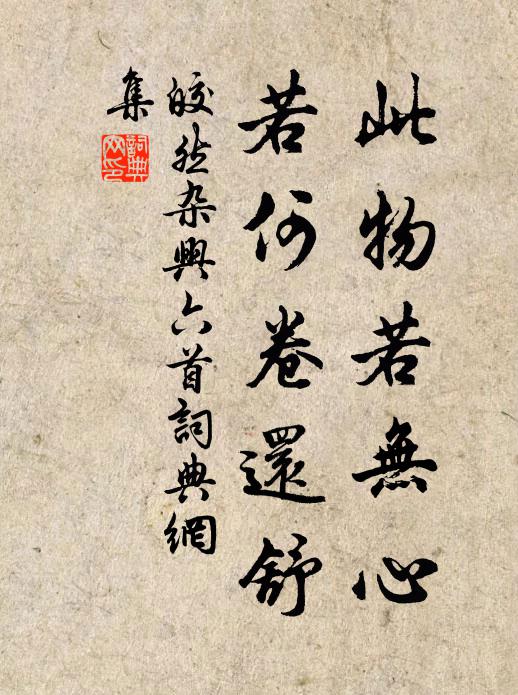 此物若無心
若何卷還舒
皎然杂興六首詞典網
集
詞典
网印